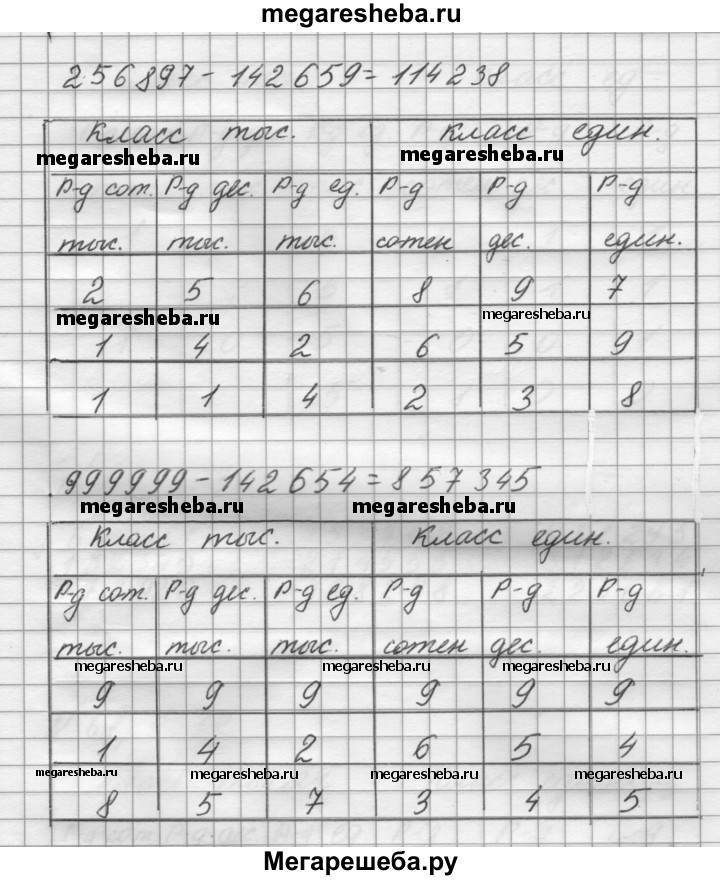 megaresheba.ru
256897-142659=114238
Класс тыс. Класс един.
megaresheba.ru megaresheba.ru
Р-д сот. Р-д дес. Р-д ед. Р-д Р-д Р-д
тыс. тыс. тыс. сотен дес. един.
2 5 6 8 9 7
megaresheba.ru megaresheba.ru
1 4 2 6 5 9
1 1 4 2 3 8
999999-142654=857345
megaresheba.ru megaresheba.ru
Класс тыс. Класс един.
Р-д сот. Р-д дес. Р-д ед. Р-д Р-д Р-д
тыс. тыс. тыс. сотен дес. един.
megaresheba.ru megaresheba.ru megaresheba.ru
9 9 9 9 9 9
1 4 2 6 5 4
megaresheba.ru megaresheba.ru megaresheba.ru megaresheba.ru
8 5 7 3 4 5
Мегарешеба.ру